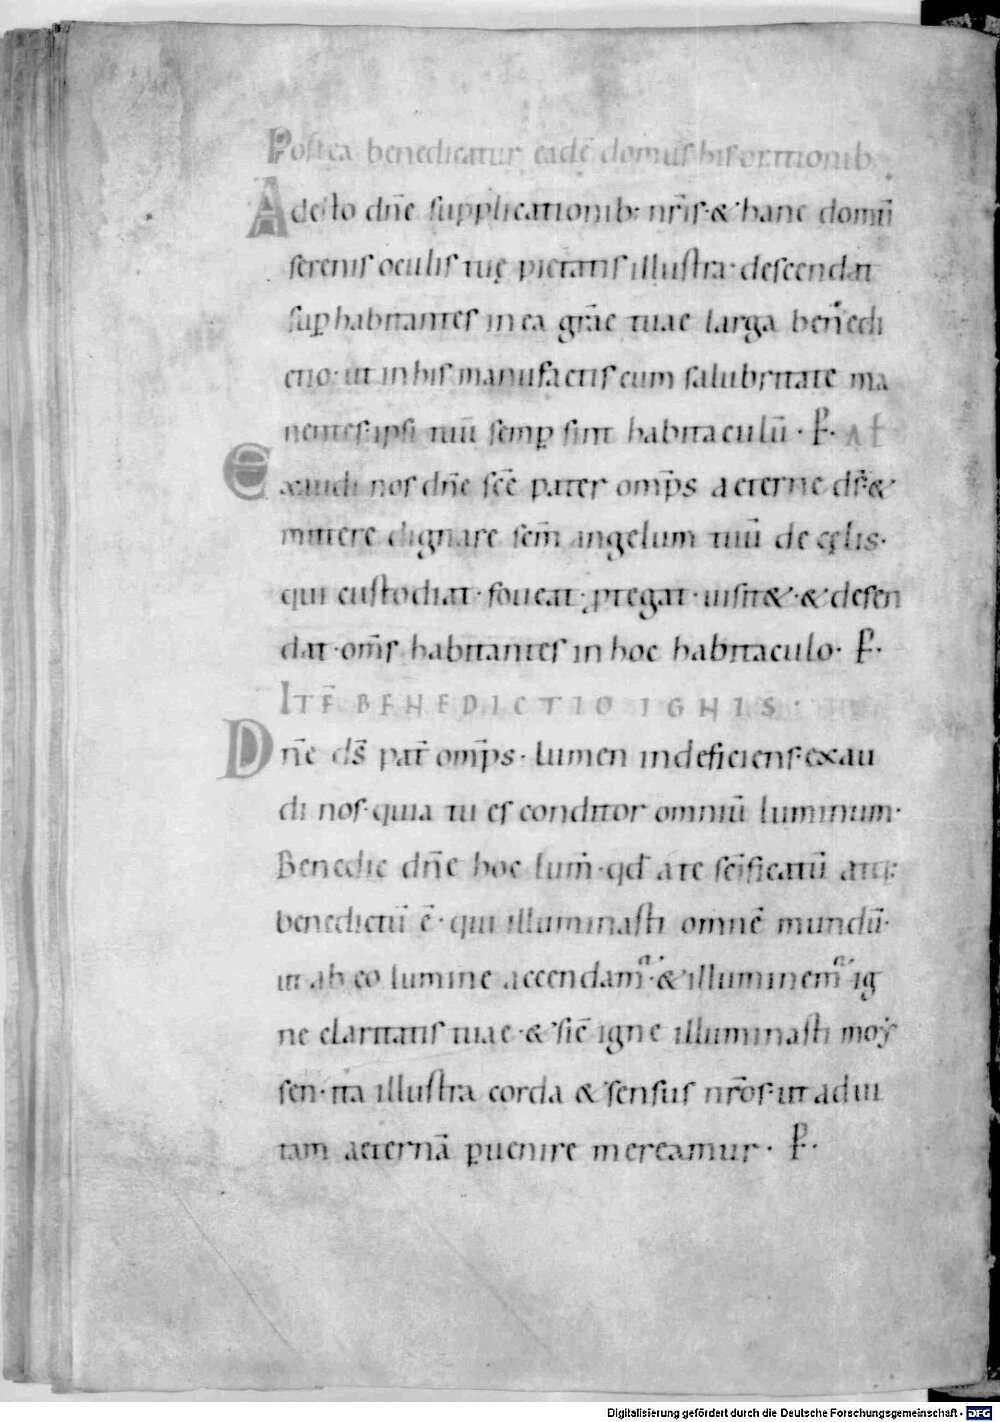 Postea benedicatur eadē domus his orationib.
Adesto dn̄e supplicationib: nr̄is· & hanc domū
serenis oculis tuę pietatis illustra· descendat
suꝑ habitantes in ea gr̄ae tuae larga benedi
ctio· ut in his manufactis cum salubritate ma
nentes· ipsi tuū semꝑ sint habitaculū· P̱·
Exaudi nos dn̄e sc̄e pater omp̄s aeterne ds̄· &
mittere dignare sc̄m angelum tuū de cęlis·
qui custodiat· foueat· ꝓtegat· uisit&· & defen
dat· om̄s habitantes in hoc habitaculo· P̱·
ITĒ BENEDICTIO IGNIS·
Dn̄e ds̄ pat̄ omp̄s· lumen indeficiens· exau
di nos· quia tu es conditor omniū luminum·
Benedic dn̄e hoc lum̄· qd̄ a te sc̄ificatū atq:
benedictū ē· qui illuminasti omnē mundū·
ut ab eo lumine accendam̄· & illuminem̄ ig
ne claritatis tuae· & sic̄ igne illuminasti moẏ
sen· ita illustra corda & sensus nr̄os· ut ad ui
tam aeternā ꝑuenire mereamur· P̱·
Digitalisierung gefördert durch die Deutsche Forschungsgemeinschaft - DFG